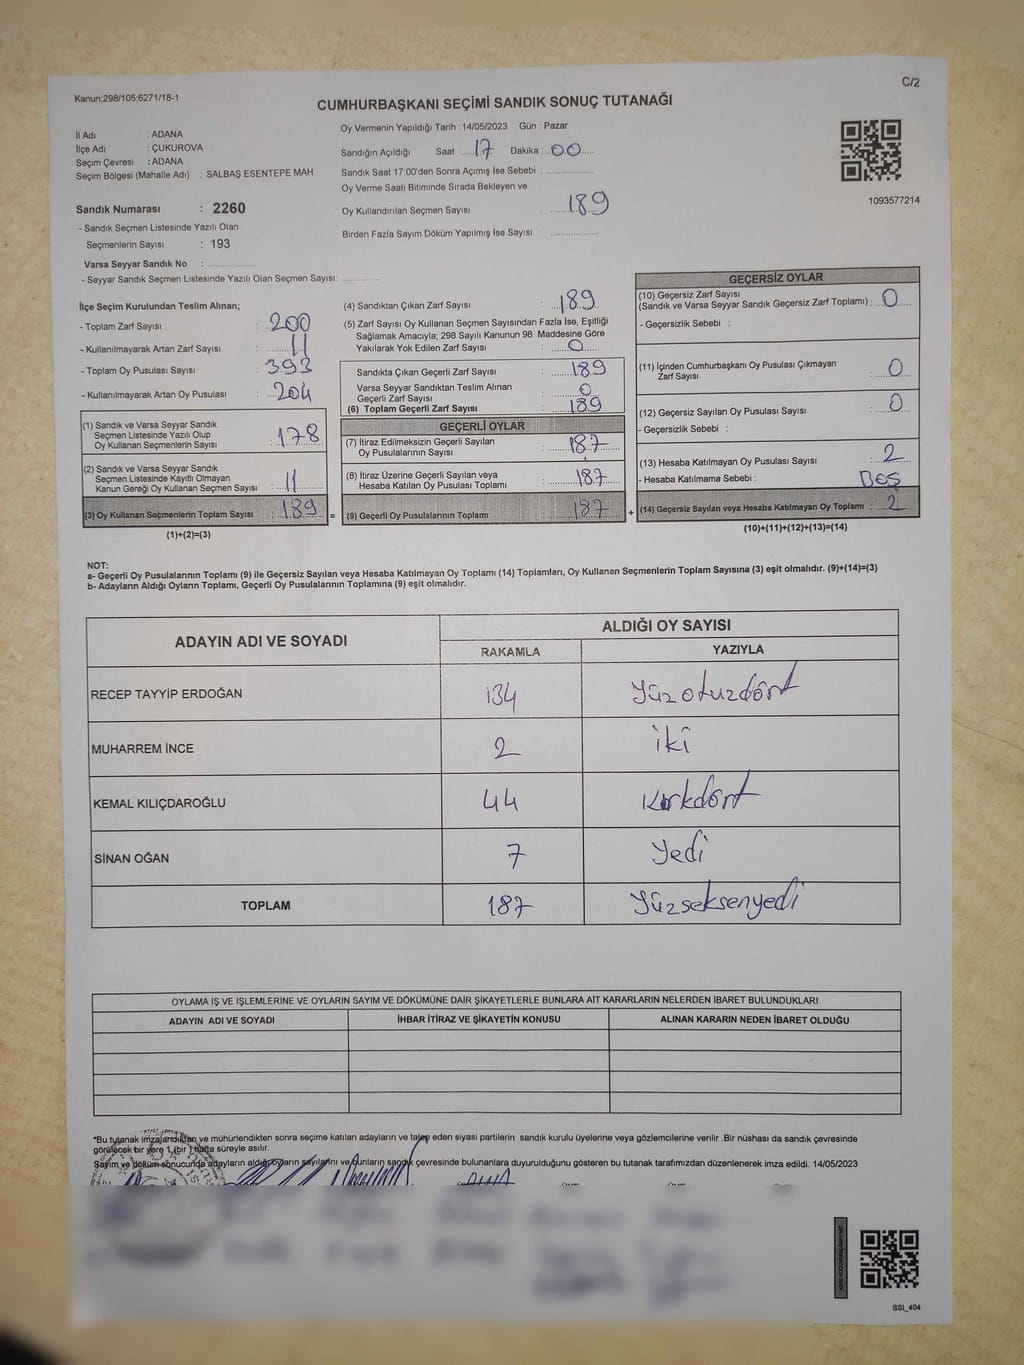 Kanun;298/105;6271/18-1
C/2
CUMHURBAŞKANI SEÇİMİ SANDIK SONUÇ TUTANAĞI
İl Adı : ADANA
İlçe Adı : ÇUKUROVA
Seçim Çevresi : ADANA
Seçim Bölgesi (Mahalle Adı) : SALBAŞ ESENTEPE MAH.
Sandık Numarası : 2260
- Sandık Seçmen Listesinde Yazılı Olan
Seçmenlerin Sayısı : 193
Varsa Seyyar Sandık No :
- Seyyar Sandık Seçmen Listesinde Yazılı Olan Seçmen Sayısı:
Oy Vermenin Yapıldığı Tarih : 14/05/2023 Gün : Pazar
Sandığın Açıldığı Saat 17 Dakika : 00
Sandık Saat 17:00'den Sonra Açımış İse Sebebi :
Oy Verme Saati Bitiminde Sırada Bekleyen ve
Oy Kullandırılan Seçmen Sayısı : 189
Birden Fazla Sayım Döküm Yapılmış İse Sayısı :
1093577214
İlçe Seçim Kurulundan Teslim Alınan;
- Toplam Zarf Sayısı : 200
- Kullanılmayarak Artan Zarf Sayısı : 11
- Toplam Oy Pusulası Sayısı : 393
- Kullanılmayarak Artan Oy Pusulası : 204
(1) Sandık ve Varsa Seyyar Sandık
Seçmen Listesinde Yazılı Olup
Oy Kullanan Seçmenlerin Sayısı : 178
(2) Sandık ve Varsa Seyyar Sandık
Seçmen Listesinde Kayıtlı Olmayan
Kanun Gereği Oy Kullanan Seçmen Sayısı : 11
(3) Oy Kullanan Seçmenlerin Toplam Sayısı : 189 =
(1)+(2)=(3)
(4) Sandıktan Çıkan Zarf Sayısı : 189
(5) Zarf Sayısı Oy Kullanan Seçmen Sayısından Fazla İse, Eşitliği
Sağlamak Amacıyla; 298 Sayılı Kanunun 98. Maddesine Göre
Yakılarak Yok Edilen Zarf Sayısı : 0
Sandıkta Çıkan Geçerli Zarf Sayısı : 189
Varsa Seyyar Sandıktan Teslim Alınan
Geçerli Zarf Sayısı : 0
(6) Toplam Geçerli Zarf Sayısı : 189
GEÇERLİ OYLAR
(7) İtiraz Edilmeksizin Geçerli Sayılan
Oy Pusulalarının Sayısı : 187
(8) İtiraz Üzerine Geçerli Sayılan veya
Hesaba Katılan Oy Pusulası Toplamı : 187
(9) Geçerli Oy Pusulalarının Toplamı : 187 +
GEÇERSİZ OYLAR
(10) Geçersiz Zarf Sayısı
(Sandık ve Varsa Seyyar Sandık Geçersiz Zarf Toplamı) : 0
- Geçersizlik Sebebi :
(11) İçinden Cumhurbaşkanı Oy Pusulası Çıkmayan
Zarf Sayısı : 0
(12) Geçersiz Sayılan Oy Pusulası Sayısı : 0
- Geçersizlik Sebebi :
(13) Hesaba Katılmayan Oy Pusulası Sayısı : 2
- Hesaba Katılmama Sebebi : Boş
(14) Geçersiz Sayılan veya Hesaba Katılmayan Oy Toplamı : 2
(10)+(11)+(12)+(13)=(14)
NOT:
a- Geçerli Oy Pusulalarının Toplamı (9) ile Geçersiz Sayılan veya Hesaba Katılmayan Oy Toplamı (14) Toplamları, Oy Kullanan Seçmenlerin Toplam Sayısına (3) eşit olmalıdır. (9)+(14)=(3)
b- Adayların Aldığı Oyların Toplamı, Geçerli Oy Pusulalarının Toplamına (9) eşit olmalıdır.
ADAYIN ADI VE SOYADI ALDIĞI OY SAYISI
RAKAMLA YAZIYLA
RECEP TAYYİP ERDOĞAN 134 Yüzotuzdört
MUHARREM İNCE 2 iki
KEMAL KILIÇDAROĞLU 44 Kırkdört
SİNAN OĞAN 7 Yedi
TOPLAM 187 Yüzseksenyedi
OYLAMA İŞ VE İŞLEMLERİNE VE OYLARIN SAYIM VE DÖKÜMÜNE DAİR ŞİKAYETLERLE BUNLARA AİT KARARLARIN NELERDEN İBARET BULUNDUKLARI
ADAYIN ADI VE SOYADI İHBAR İTİRAZ VE ŞİKAYETİN KONUSU ALINAN KARARIN NEDEN İBARET OLDUĞU
*Bu tutanak imzalandıktan ve mühürlendikten sonra seçime katılan adayların ve talep eden siyasi partilerin sandık kurulu üyelerine veya gözlemcilerine verilir .Bir nüshası da sandık çevresinde
görülecek bir yere 1 (bir ) hafta süreyle asılır.
Sayım ve döküm sonucunda adayların aldığı oyların sayılarını ve bunların sandık çevresinde bulunanlara duyurulduğunu gösteren bu tutanak tarafımızdan düzenlenerek imza edildi. 14/05/2023
SSI_404